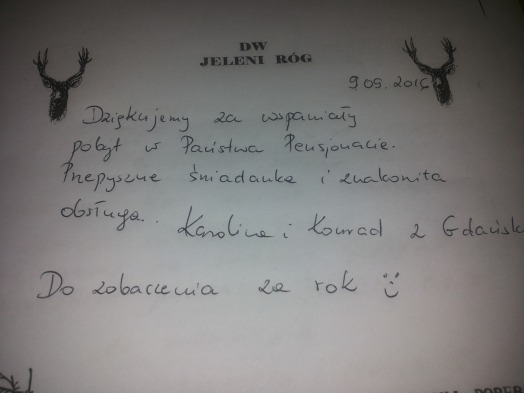 DW
JELENI RÓG
Dziękujemy za wspaniały
pobyt w Państwa Pensjonacie.
Przepyszne śniadanka i znakomita
obsługa. Karolina i Konrad z Gdańsk
Do zobaczenia za rok